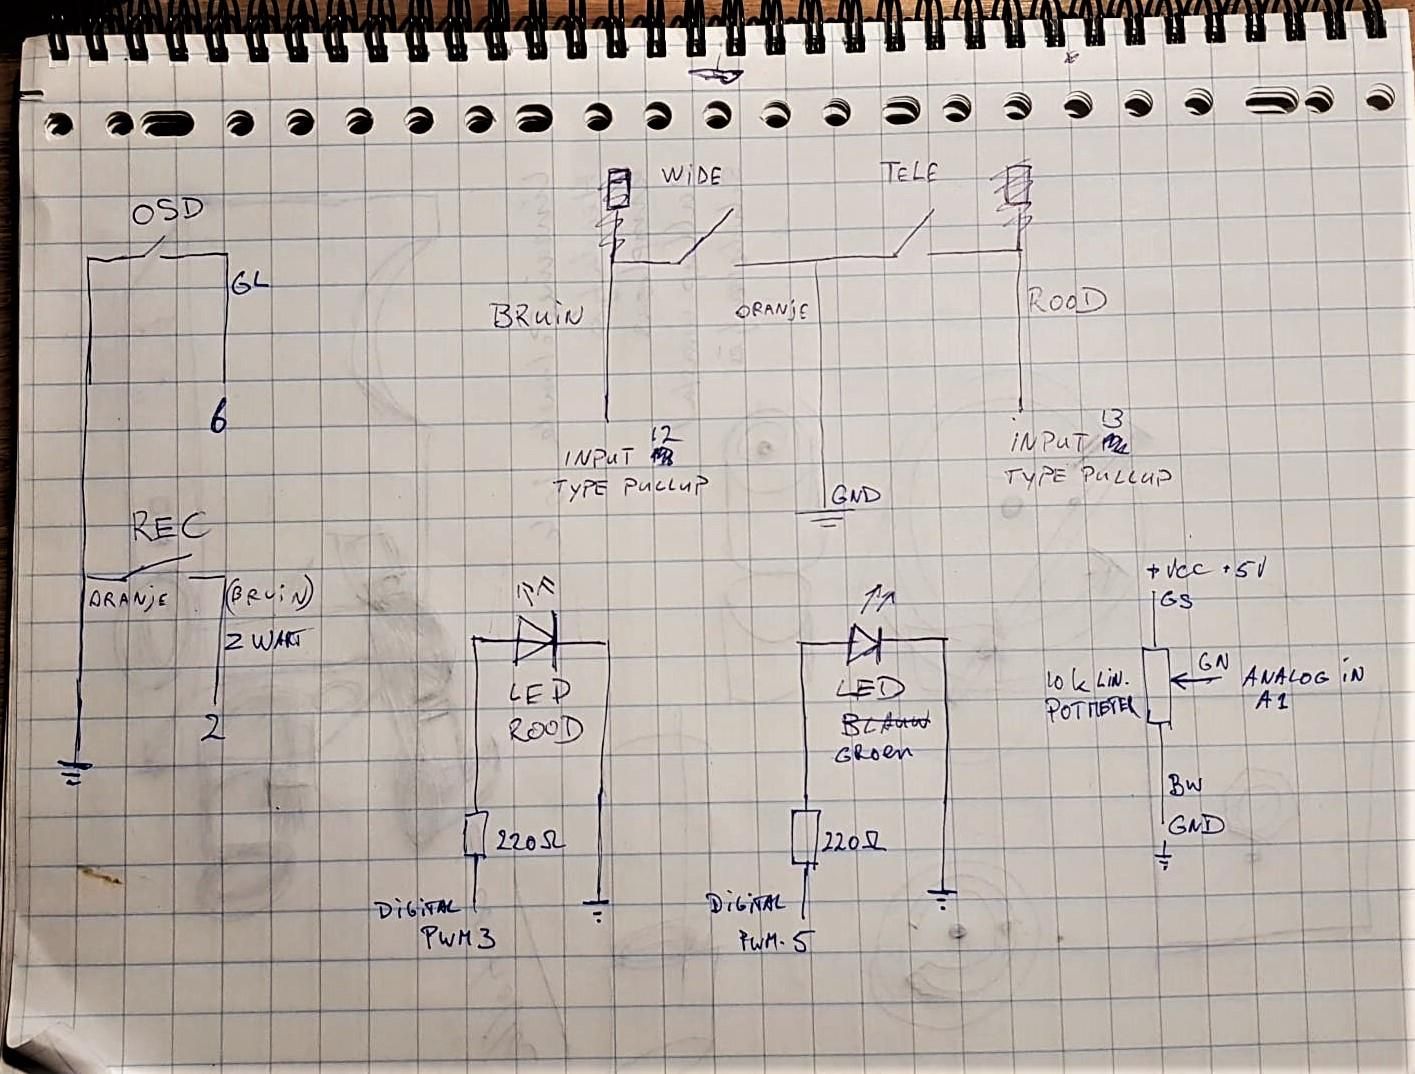 OSD
GL
6
REC
ORANJE
(BRUIN)
2 WART
2
WIDE
TELE
BRUIN
ORANJE
ROOD
12
INPUT
TYPE PULLUP
GND
13
INPUT
TYPE PULLUP
LED
ROOD
220Ω
DIGITAL
PWM 3
LED
BLAUW
GROEN
220Ω
DIGITAL
PWM. 5
+VCC +5V
GS
10k LIN.
POTMETER
GN
ANALOG IN
A1
BW
GND